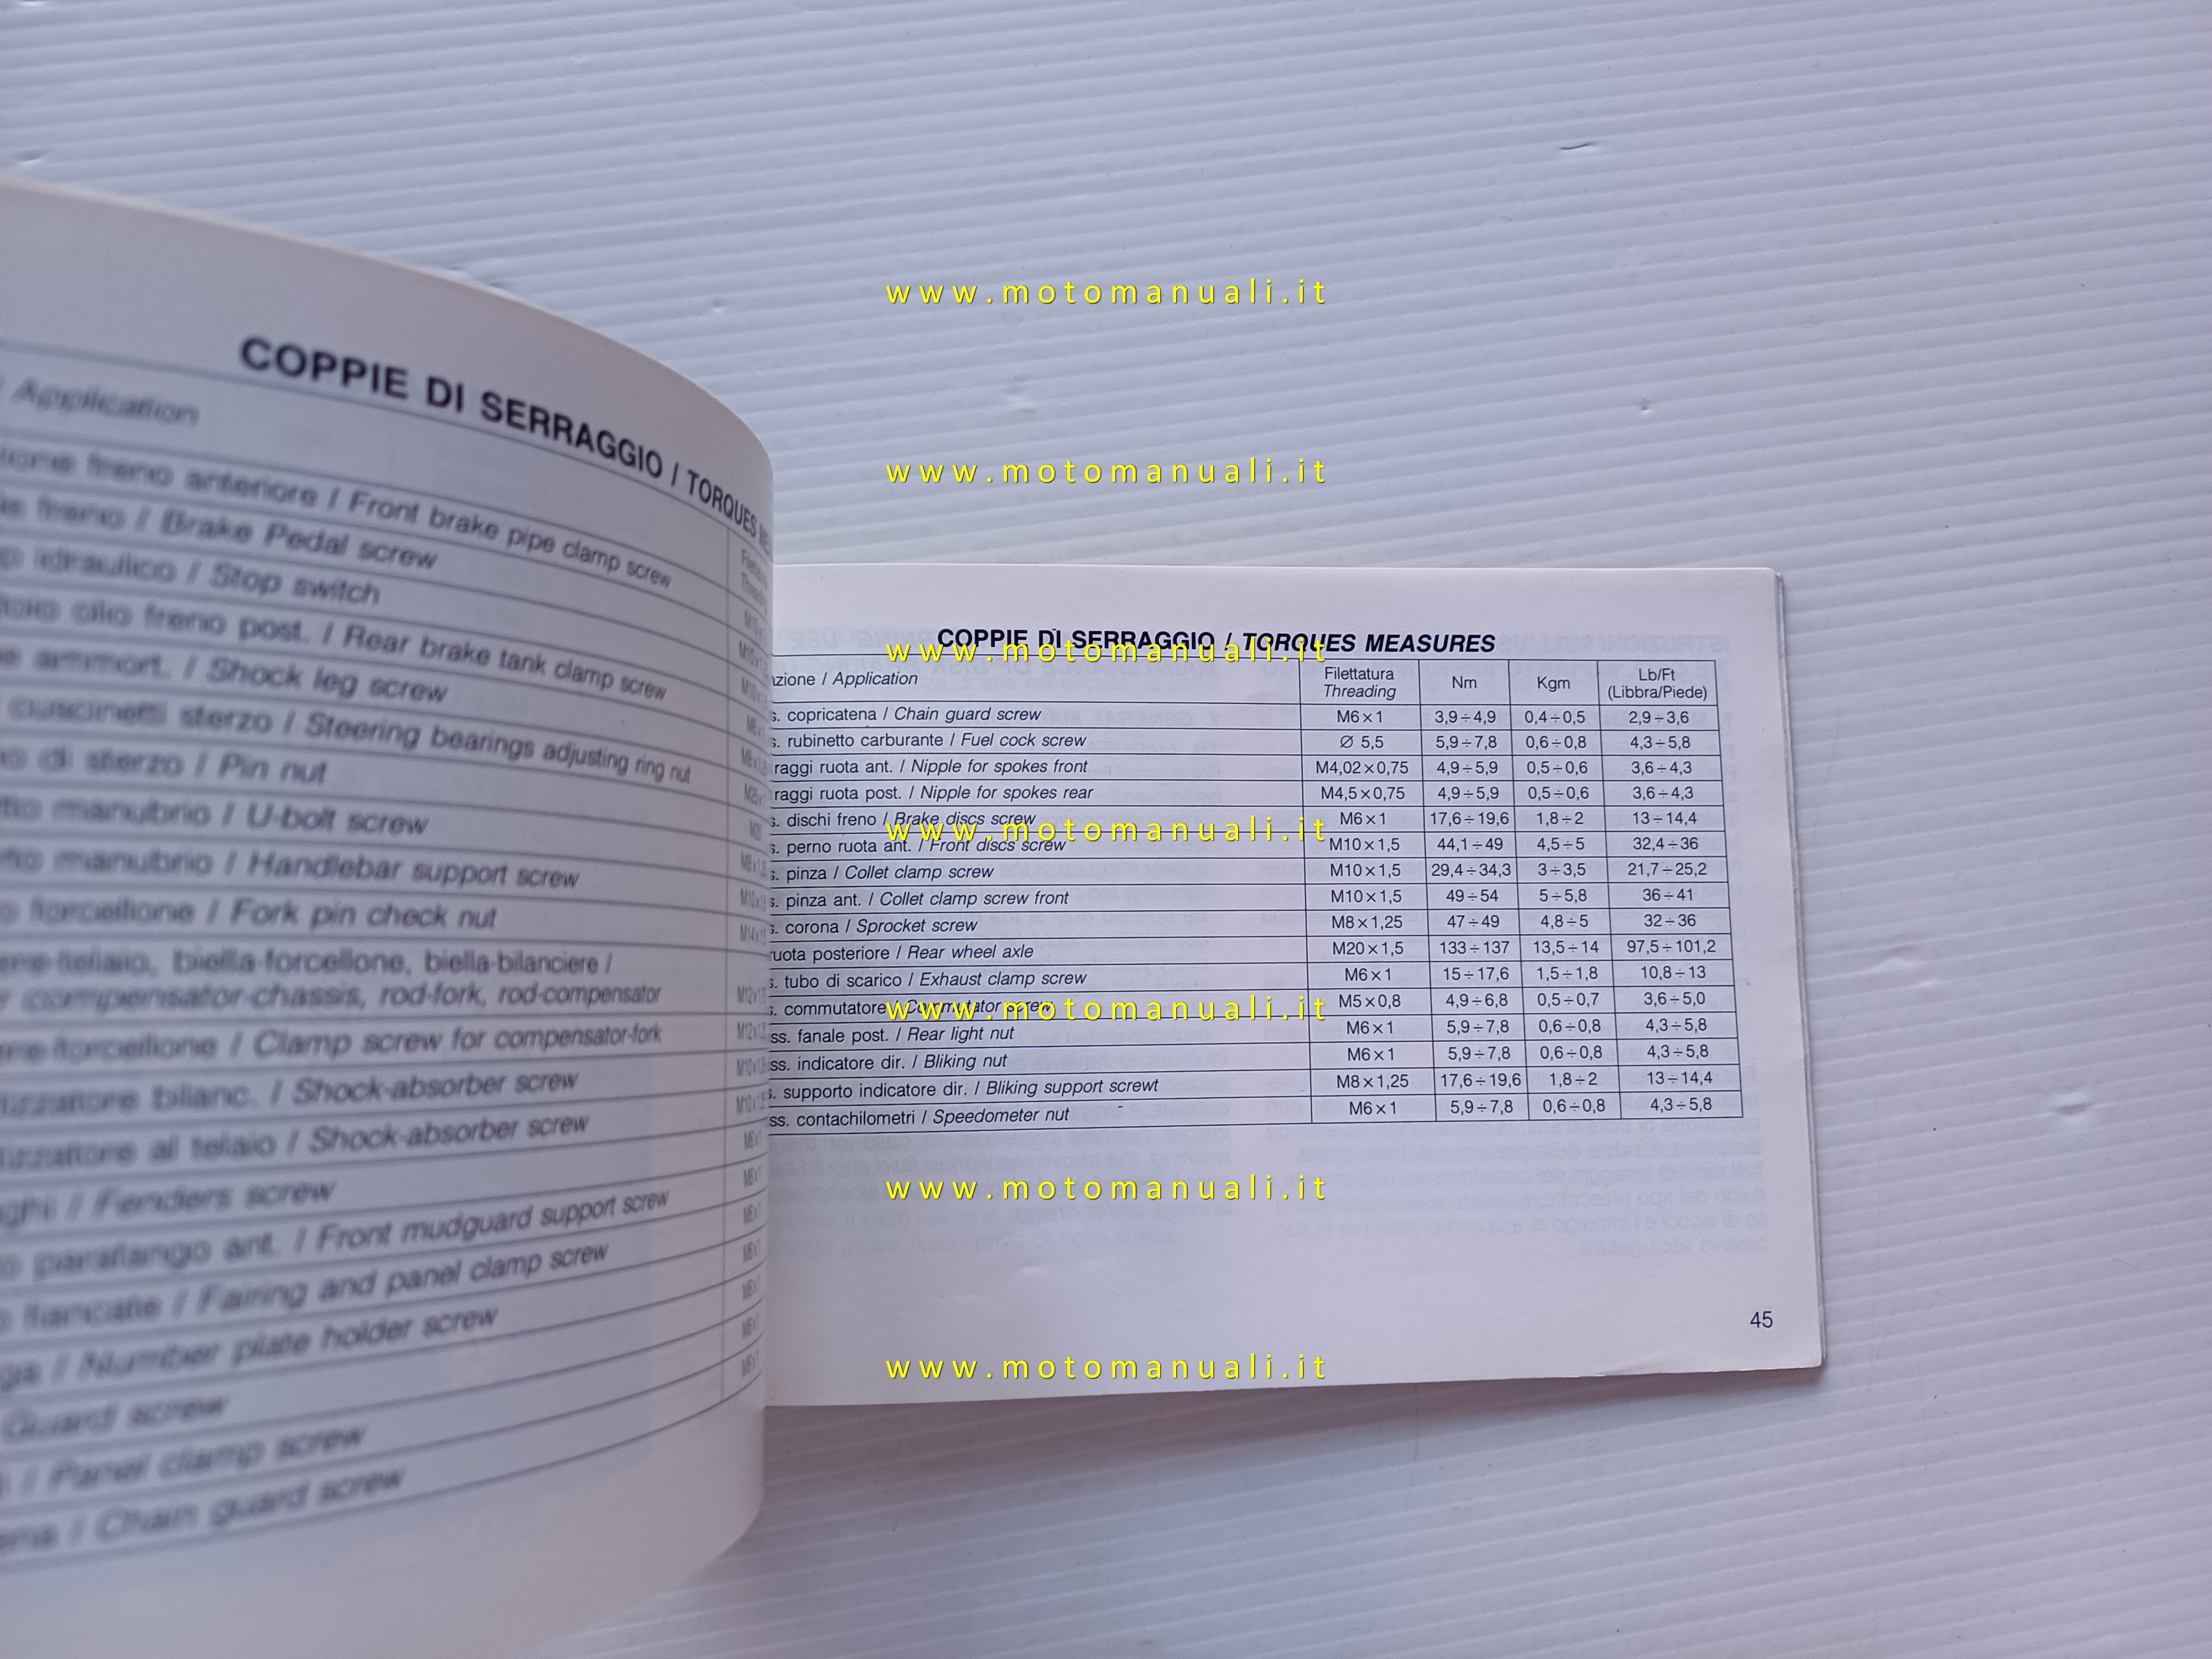 COPPIE DI SERRAGGIO / TORQUES
/ Application
freno anteriore / Front brake pipe clamp screw
freno / Brake Pedal screw
idraulico / Stop switch
olio freno post. / Rear brake tank clamp screw
ammort. / Shock leg screw
cuscinetti sterzo / Steering bearings adjusting ring nut
di sterzo / Pin nut
manubrio / U-bolt screw
manubrio / Handlebar support screw
forcellone / Fork pin check nut
biella-forcellone, biella-bilanciere /
compensator-chassis, rod-fork, rod-compensator
forcellone / Clamp screw for compensator-fork
bilanc. / Shock-absorber screw
al telaio / Shock-absorber screw
/ Fenders screw
parafango ant. / Front mudguard support screw
fiancate / Fairing and panel clamp screw
/ Number plate holder screw
Guard screw
/ Panel clamp screw
/ Chain guard screw
www.motomanuali.it
www.motomanuali.it
COPPIE DI SERRAGGIO / TORQUES MEASURES
www.motomanuali.it
zione / Application Filettatura Threading Nm Kgm Lb/Ft (Libbra/Piede)
s. copricatena / Chain guard screw M6×1 3,9÷4,9 0,4÷0,5 2,9÷3,6
s. rubinetto carburante / Fuel cock screw Ø 5,5 5,9÷7,8 0,6÷0,8 4,3÷5,8
raggi ruota ant. / Nipple for spokes front M4,02×0,75 4,9÷5,9 0,5÷0,6 3,6÷4,3
raggi ruota post. / Nipple for spokes rear M4,5×0,75 4,9÷5,9 0,5÷0,6 3,6÷4,3
s. dischi freno / Brake discs screw M6×1 17,6÷19,6 1,8÷2 13÷14,4
www.motomanuali.it
s. perno ruota ant. / Front discs screw M10×1,5 44,1÷49 4,5÷5 32,4÷36
s. pinza / Collet clamp screw M10×1,5 29,4÷34,3 3÷3,5 21,7÷25,2
s. pinza ant. / Collet clamp screw front M10×1,5 49÷54 5÷5,8 36÷41
s. corona / Sprocket screw M8×1,25 47÷49 4,8÷5 32÷36
ruota posteriore / Rear wheel axle M20×1,5 133÷137 13,5÷14 97,5÷101,2
s. tubo di scarico / Exhaust clamp screw M6×1 15÷17,6 1,5÷1,8 10,8÷13
s. commutatore / Commutator screw M5×0,8 4,9÷6,8 0,5÷0,7 3,6÷5,0
www.motomanuali.it
ss. fanale post. / Rear light nut M6×1 5,9÷7,8 0,6÷0,8 4,3÷5,8
ss. indicatore dir. / Bliking nut M6×1 5,9÷7,8 0,6÷0,8 4,3÷5,8
s. supporto indicatore dir. / Bliking support screwt M8×1,25 17,6÷19,6 1,8÷2 13÷14,4
ss. contachilometri / Speedometer nut M6×1 5,9÷7,8 0,6÷0,8 4,3÷5,8
www.motomanuali.it
45
www.motomanuali.it